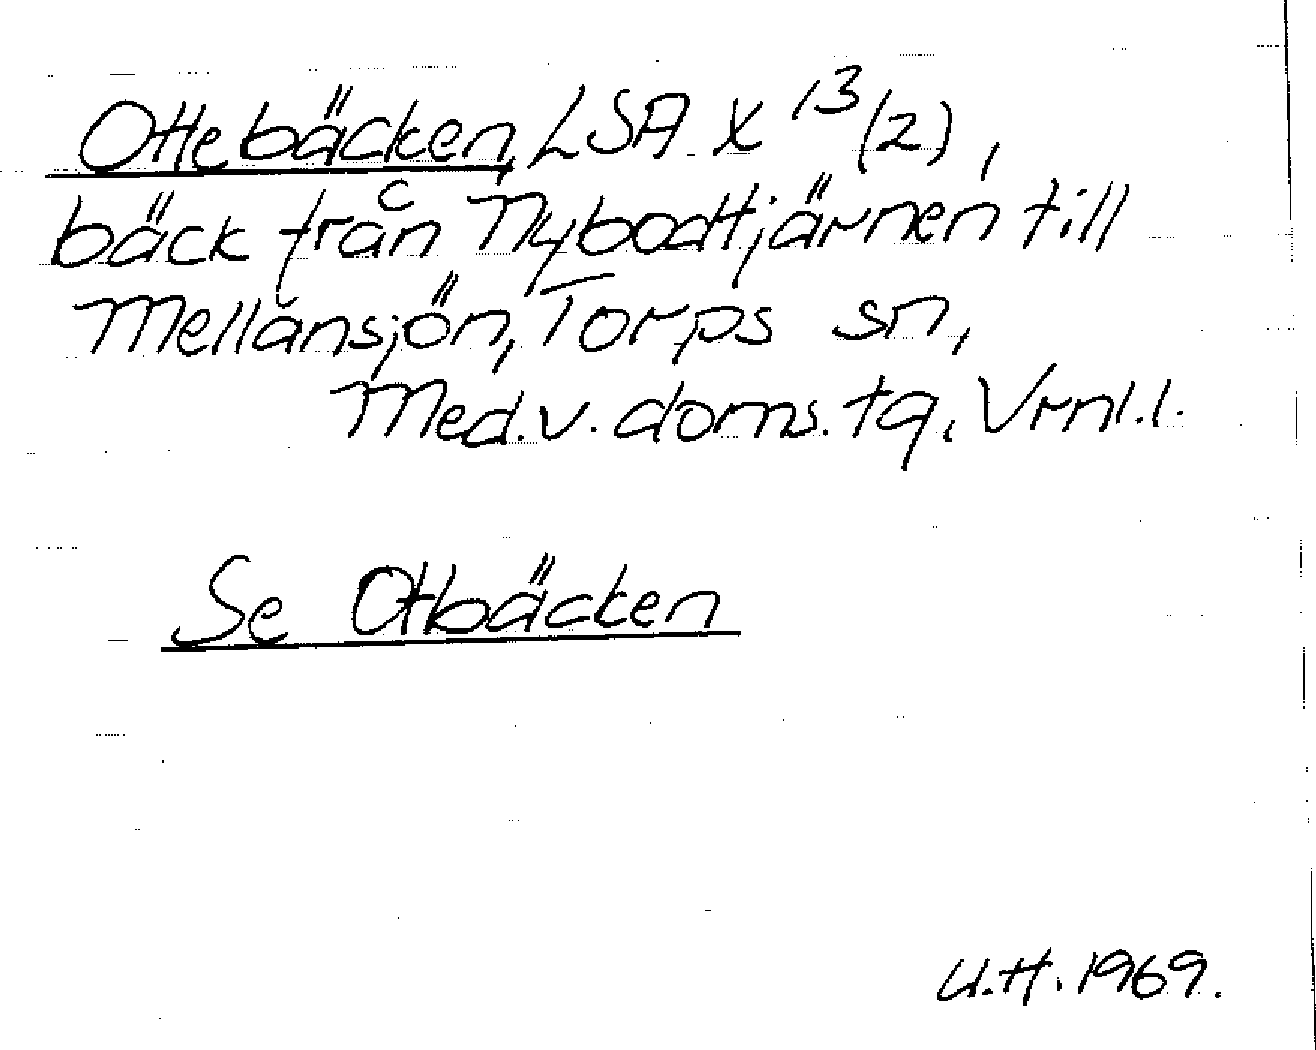 Ottebäcken, LSA X 13 (2),
bäck från Nybodtjärnen till
Mellansjön, Torps sn,
Med.v. doms. tq, Vrnl.l.
Se Otbäcken
U.H. 1969.